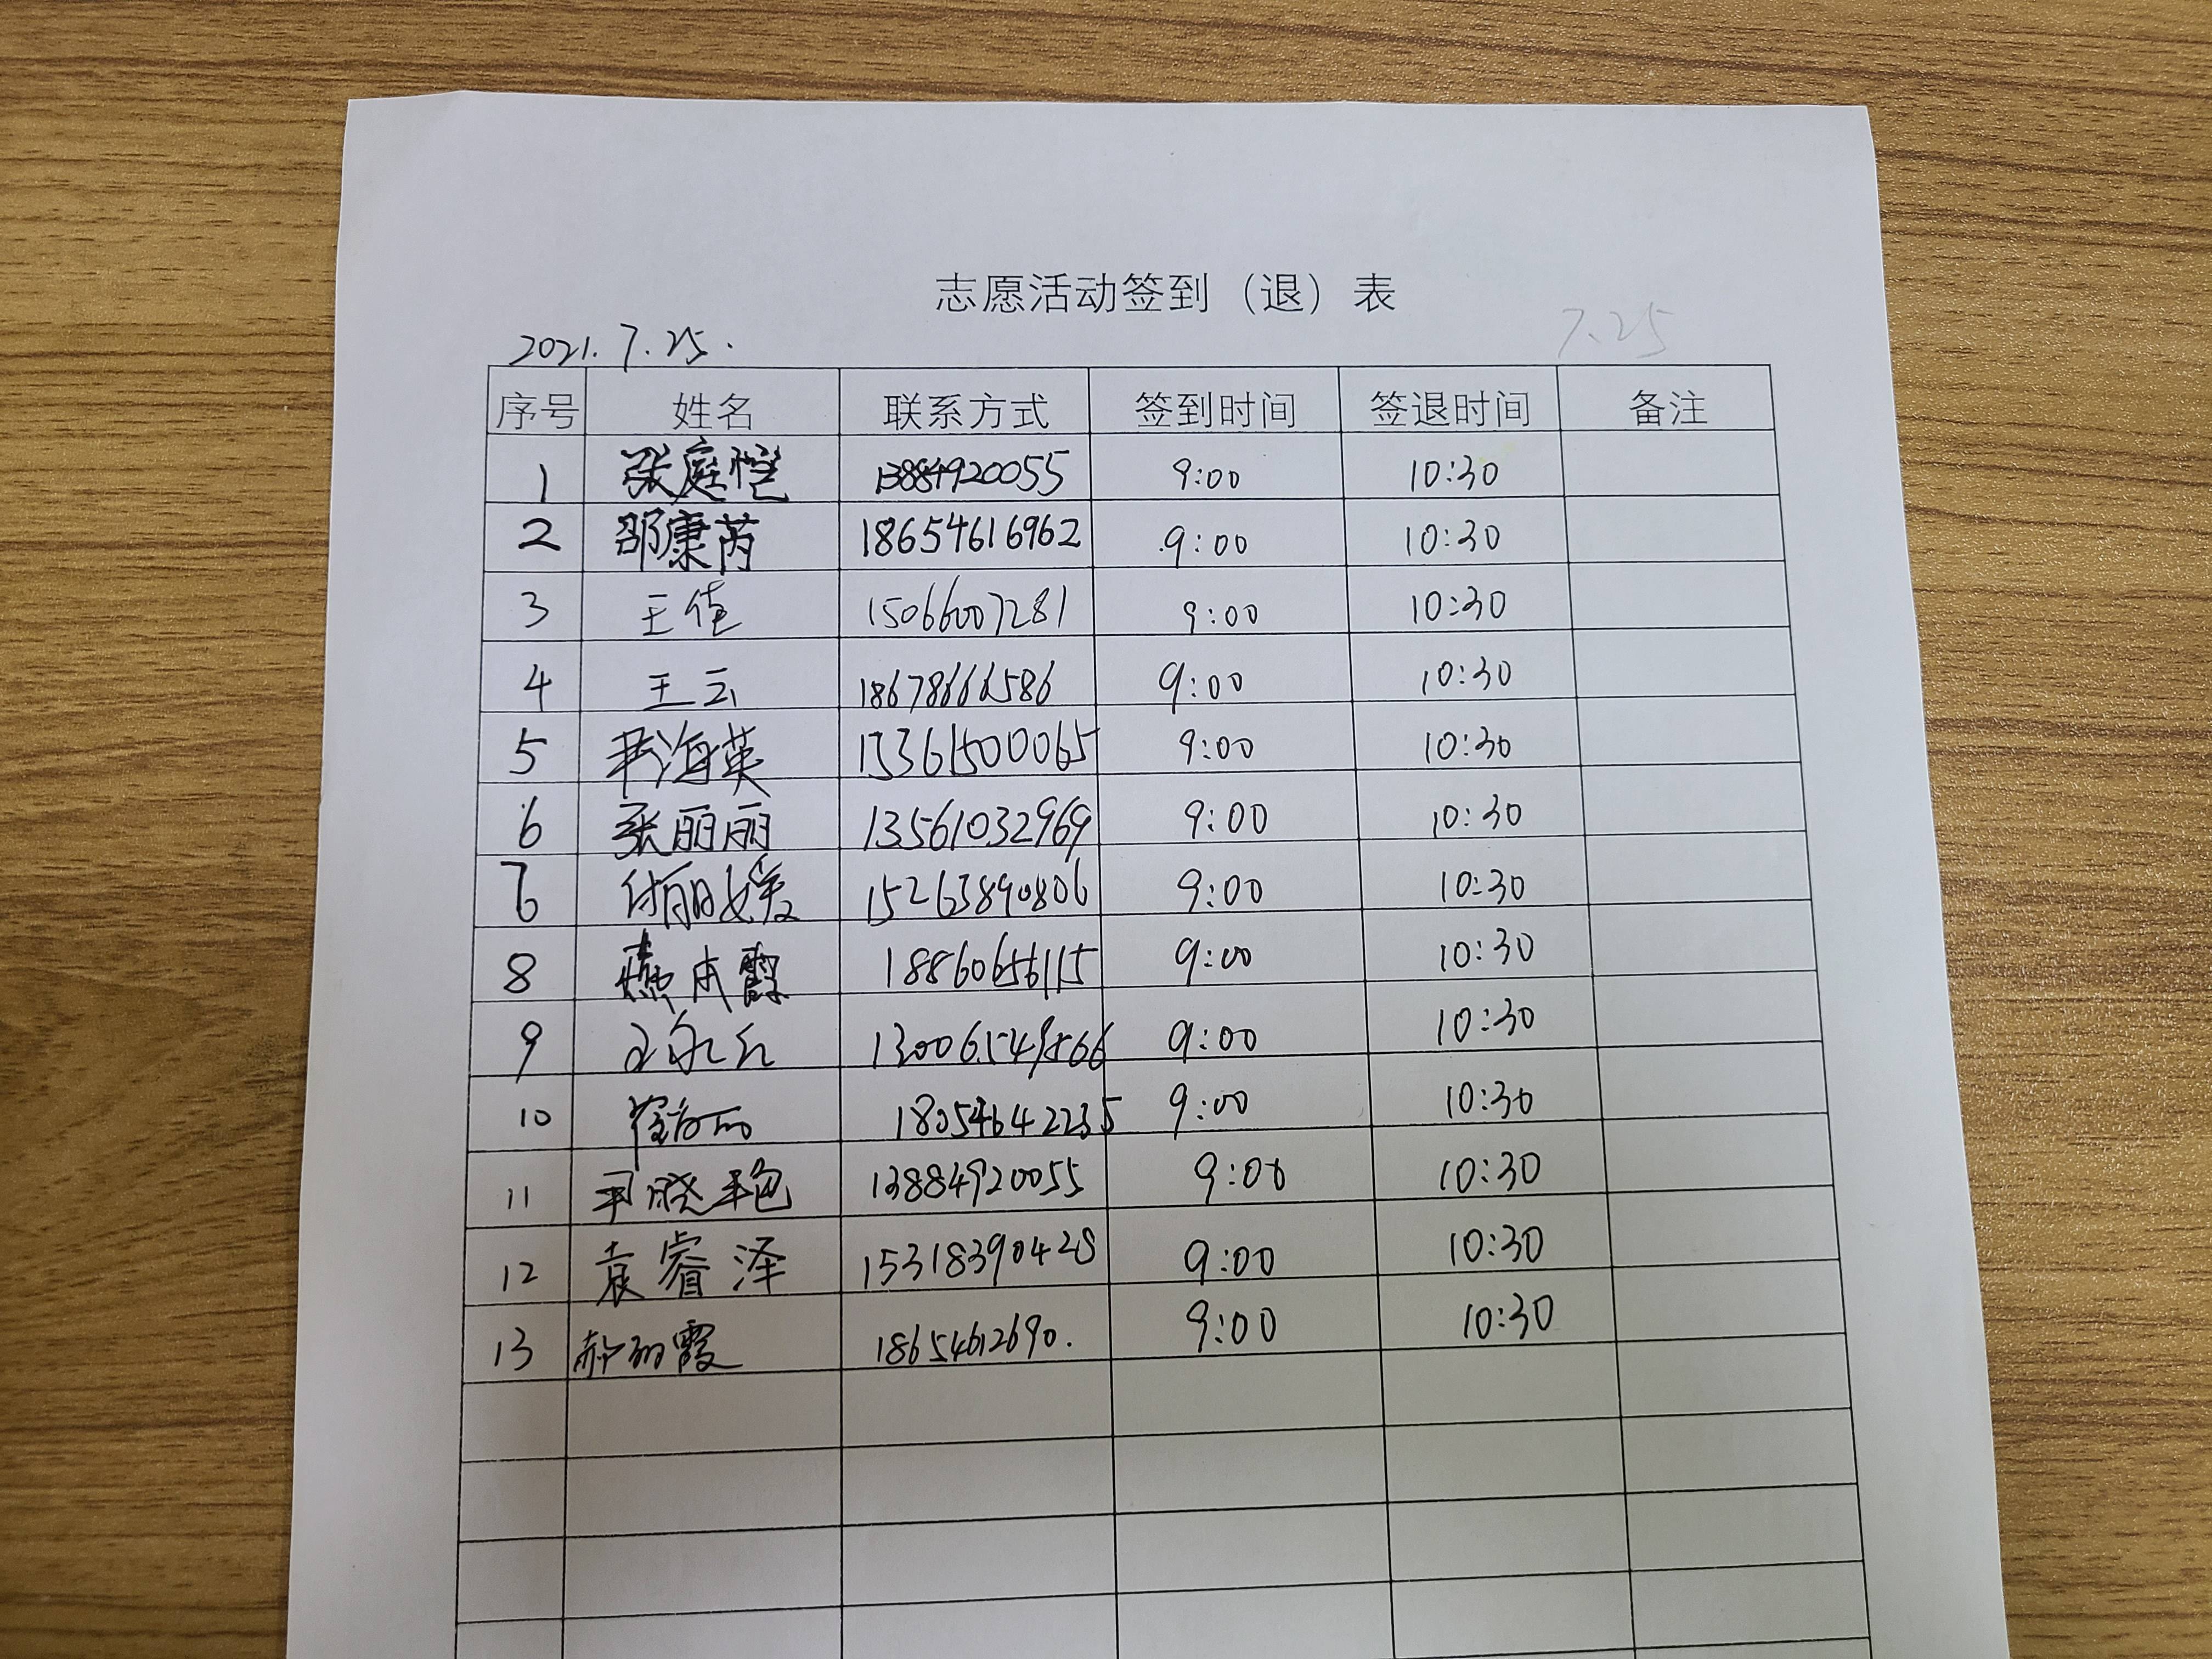 志愿活动签到（退）表
2021.7.25.
7.25
序号 姓名 联系方式 签到时间 签退时间 备注
1 张庭恺 13884920055 9:00 10:30
2 邵康芮 18654616962 9:00 10:30
3 王佳 15066007281 9:00 10:30
4 王云 18678666586 9:00 10:30
5 尹海英 13361500065 9:00 10:30
6 张丽丽 13561032969 9:00 10:30
7 付丽媛 15263890806 9:00 10:30
8 燕成霞 18860656115 9:00 10:30
9 9:00 10:30
10 18054642235 9:00 10:30
11 13884920055 9:00 10:30
12 袁睿泽 15318390428 9:00 10:30
13 霞 18654612690. 9:00 10:30